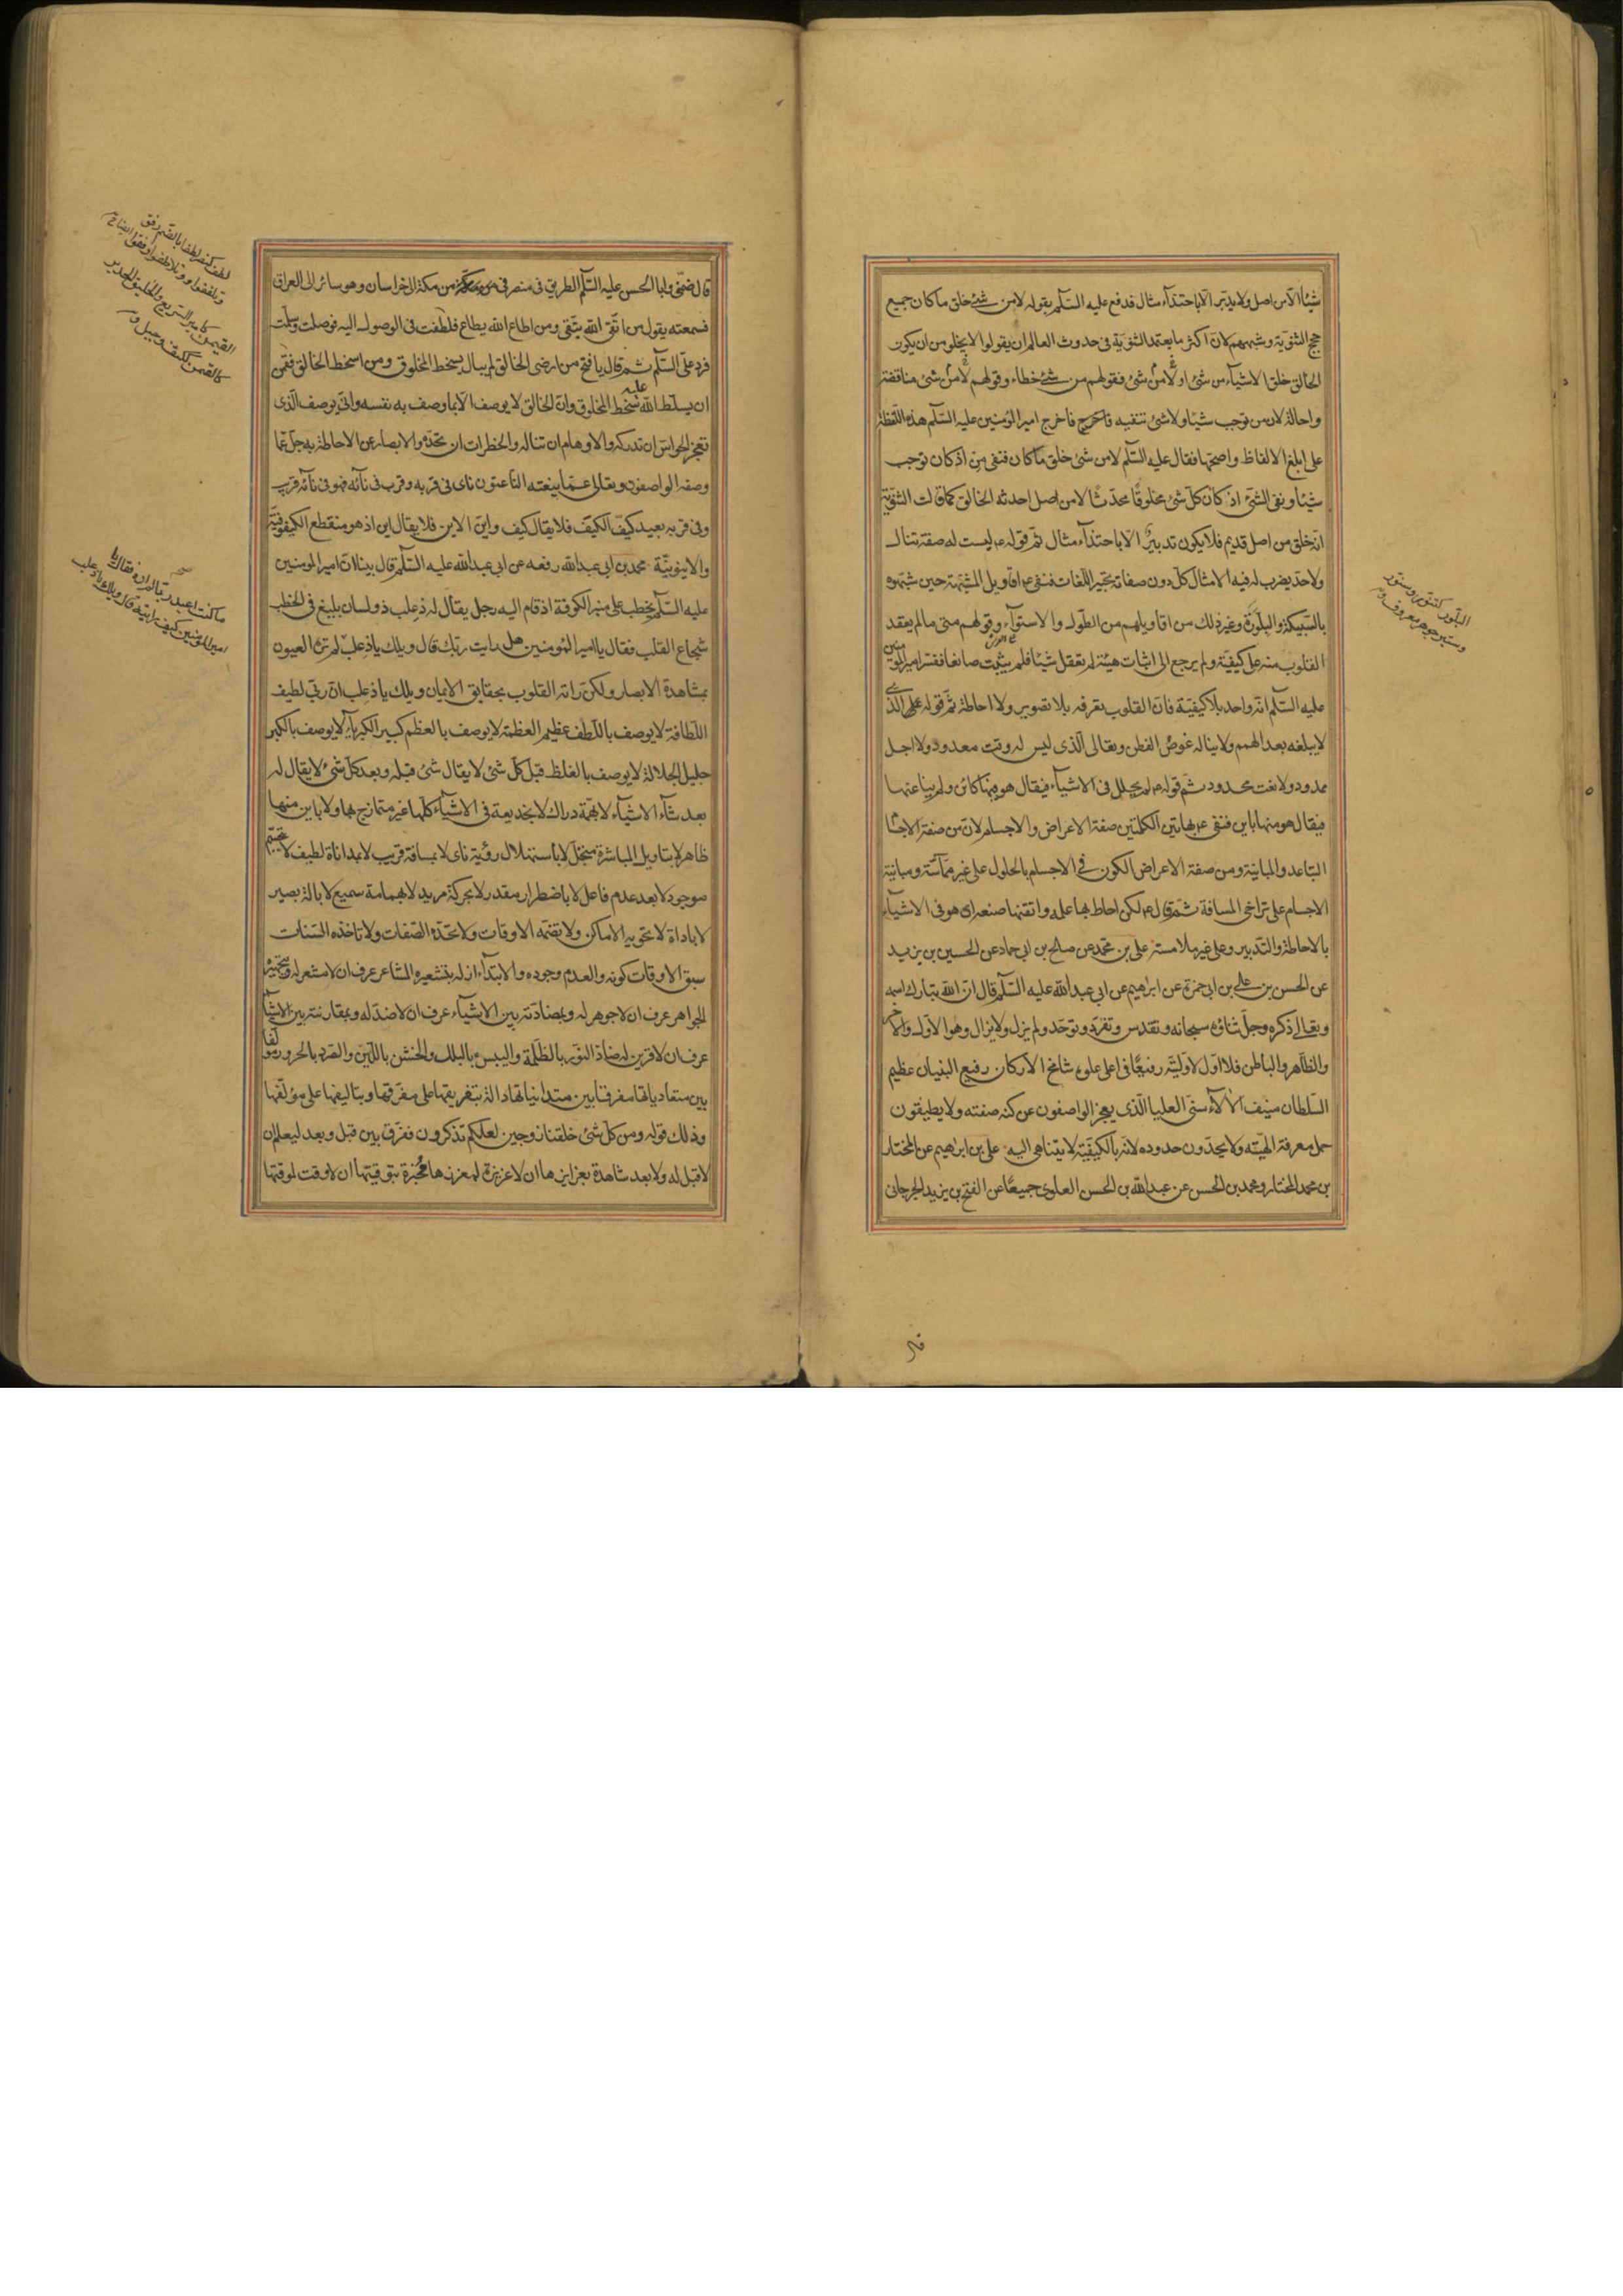 شيئا الا من اصل ولا يدبر الا باحتذاء مثال فدفع عليه السلم بقوله لا من شئ خلق ما كان جميع
حجج الثنوية وشبههم لان اكثر ما يعتمد الثنوية فى حدوث العالم ان يقولوا لا يخلو من ان يكون
الخالق خلق الاشياء من شئ او لا من شئ فقولهم من شئ خطاء وقولهم لا من شئ مناقضة
واحالة لان من توجب شيئا ولا شئ تنفيه فاخرج امير المؤمنين عليه السلم هذه اللفظة
على ابلغ الالفاظ واصحها فقال عليه السلم لا من شئ خلق ما كان فنفى من اذ كان توجب
شيئا ونفى الشئ اذ كان كل شئ مخلوقا محدثا لا من اصل احدثه الخالق كما قالت الثنوية
انه خلق من اصل قديم فلا يكون تدبير الا باحتذاء مثال ثم قوله ع ليست له صفة تنال
ولا حد يضرب له فيه الامثال كل دون صفاته تحبير اللغات فنفى ع اقاويل المشبهة حين شبهوه
بالسبيكة والبلورة وغير ذلك من اقاويلهم من الطول والاستواء وقولهم متى ما لم يعقد
القلوب منه على كيفية ولم يرجع الى اثبات هيئة لم تعقل شيئا فلم يثبت صانعا ففسر امير المؤمنين
عليه السلم انه واحد بلا كيفية فان القلوب تعرفه بلا تصوير ولا احاطة ثم قوله ع الذى
لا يبلغه بعد الهمم ولا يناله غوص الفطن وتعالى الذى ليس له وقت معدود ولا اجل
ممدود ولا نعت محدود ثم قوله ع لم يحلل فى الاشياء فيقال هو فيها كائن ولم ينا عنها
فيقال هو منها باين فنفى ع بهاتين الكلمتين صفة الاعراض والاجسام لان من صفة الاجسام
التباعد والمباينة ومن صفة الاعراض الكون فى الاجسام بالحلول على غير مماسة ومباينة
الاجسام على تراخى المسافة ثم قال ع لكن احاط بها علمه واتقنها صنعه اى هو فى الاشياء
بالاحاطة والتدبير وعلى غير ملامسة على بن محمد عن صالح بن ابى حماد عن الحسين بن يزيد
عن الحسن بن على بن ابى حمزة عن ابراهيم عن ابى عبد الله عليه السلم قال ان الله تبارك اسمه
وتعالى ذكره وجل ثناؤه سبحانه وتقدس وتفرد وتوحد ولم يزل ولا يزال وهو الاول والاخر
والظاهر والباطن فلا اول لاوليته رفيعا فى اعلى علوه شامخ الاركان رفيع البنيان عظيم
السلطان منيف الآلاء سنى العليا الذى يعجز الواصفون عن كنه صفته ولا يطيقون
حمل معرفة الهيته ولا يحدون حدوده لانه بالكيفية لا يتناهى اليه على بن ابراهيم عن المختار
بن محمد المختار ومحمد بن الحسن عن عبد الله بن الحسن العلوى جميعا عن الفتح بن يزيد الجرجانى
البلور كتنور وسنور
وسبطر جوهر معروف ق
قال
قال ضمنى وابا الحسن عليه السلم الطريق فى منصرفى من مكة الى خراسان وهو سائر الى العراق
فسمعته يقول من اتقى الله يتقى ومن اطاع الله يطاع فلطفت فى الوصول اليه فوصلت وسلمت
فرد على السلم ثم قال يا فتح من ارضى الخالق لم يبال بسخط المخلوق ومن اسخط الخالق فقمن
ان يسلط الله عليه سخط المخلوق وان الخالق لا يوصف الا بما وصف به نفسه وانى يوصف الذى
تعجز الحواس ان تدركه والاوهام ان تناله والخطرات ان تحده والابصار عن الاحاطة به جل عما
وصفه الواصفون وتعالى عما ينعته الناعتون ناى فى قربه وقرب فى نأئه فهو فى نأئه قريب
وفى قربه بعيد كيف الكيف فلا يقال كيف واين الاين فلا يقال اين اذ هو منقطع الكيفوفية
والاينونية محمد بن ابى عبد الله رفعه عن ابى عبد الله عليه السلم قال بينا امير المومنين
عليه السلم يخطب على منبر الكوفة اذ قام اليه رجل يقال له ذعلب ذو لسان بليغ فى الخطب
شجاع القلب فقال يا امير المؤمنين هل رايت ربك قال ويلك يا ذعلب لم تره العيون
بمشاهدة الابصار ولكن راته القلوب بحقايق الايمان ويلك يا ذعلب ان ربى لطيف
اللطافة لا يوصف باللطف عظيم العظمة لا يوصف بالعظم كبير الكبرياء لا يوصف بالكبر
جليل الجلالة لا يوصف بالغلظ قبل كل شئ لا يقال شئ قبله وبعد كل شئ لا يقال له
بعد شاء الاشياء لا بهمة دراك لا بخديعة فى الاشياء كلها غير متمازج بها ولا باين منها
ظاهر لا بتاويل المباشرة متجل لا باستهلال رؤية ناى لا بمسافة قريب لا بمداناة لطيف لا بتجسم
موجود لا بعد عدم فاعل لا باضطرار مقدر لا بحركة مريد لا بهمامة سميع لا بالة بصير
لا باداة لا تحويه الاماكن ولا تضمنه الاوقات ولا تحده الصفات ولا تاخذه السنات
سبق الاوقات كونه والعدم وجوده والابتداء ازله بتشعيره المشاعر عرف ان لا مشعر له وبتجهيره
الجواهر عرف ان لا جوهر له وبمضادته بين الاشياء عرف ان لا ضد له وبمقارنته بين الاشياء
عرف ان لا قرين له ضاد النور بالظلمة واليبس بالبلل والخشن باللين والصرد بالحرور مؤلفا
بين متعادياتها مفرقا بين متدانياتها دالة بتفريقها على مفرقها وبتاليفها على مؤلفها
وذلك قوله ومن كل شئ خلقنا زوجين لعلكم تذكرون ففرق بين قبل وبعد ليعلم ان
لا قبل له ولا بعد شاهدة بغرايزها ان لا غريزة لمغرزها مخبرة بتوقيتها ان لا وقت لموقتها
لطف كنصر لطفا بالضم رفق
القمين كامير السريع والخليق الجدير
كالقمن ككتف وجبل ق
ما كنت اعبد ربا لم اره فقال يا
امير المؤمنين كيف رايته قال ويلك يا ذعلب
صح